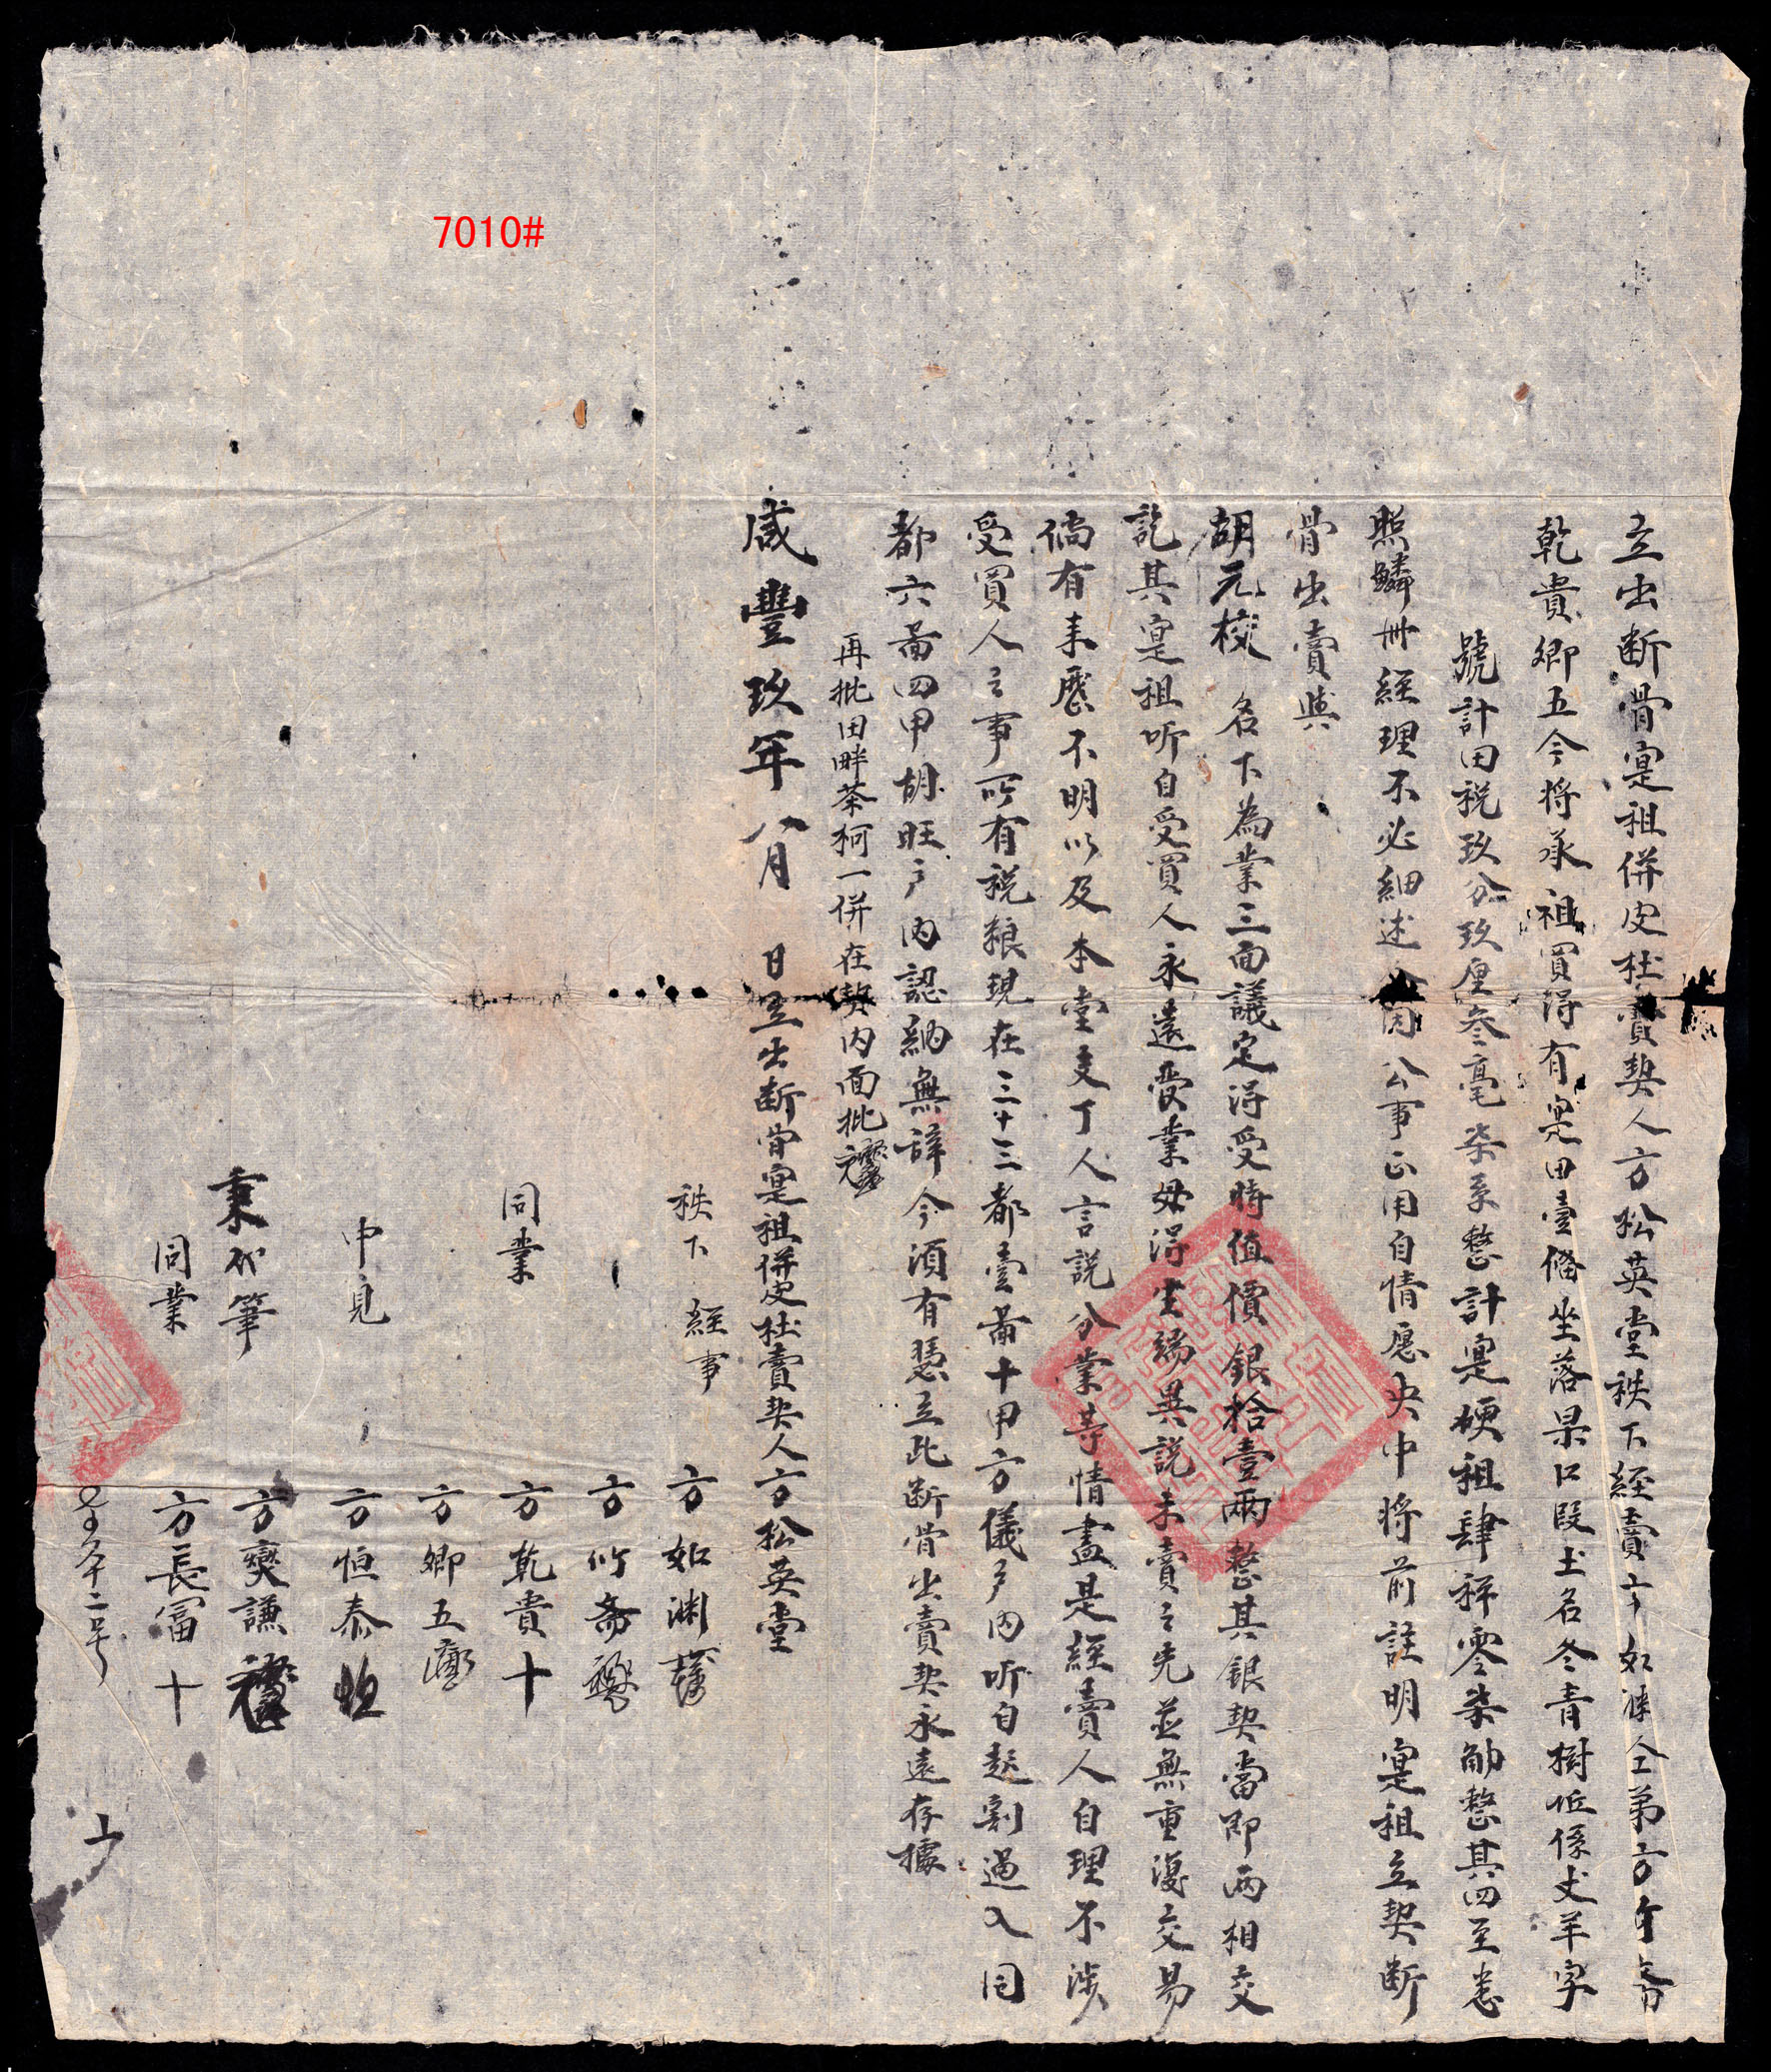 7010#
立出断骨寔租併皮杜賣契人方松英堂秩下経賣方如渊仝弟方竹斋
乾貴卿五今将承祖買得有寔田壹條坐落杲口叚土名冬青樹坵係丈羊字
號計田稅玖分玖厘叁毫柒系整計寔硬租肆秤零柒觔整其四至悉
照鱗冊経理不必細述今因公事正用自情愿央中将前註明寔租立契断
骨出賣與
胡元楼名下為業三面議定淂受時值價銀拾壹兩整其銀契當即両相交
訖其寔租听自受買人永遠受業毋淂生端異説未賣之先並無重復交易
倘有来歷不明以及本堂支丁人言説分業等情盡是経賣人自理不涉
受買人之事所有税粮現在三十三都壹啚十甲方儀户内听自起割過入同
都六啚四甲胡旺户内認納無辞今須有凴立此断骨出賣契永遠存據
再批田畔茶柯一併在契内面批
咸豐玖年八月 日立出断骨寔租併皮杜賣契人方松英堂
秩下 経事 方如渊
方竹斋
同業 方乾貴 十
方卿五
中見 方恒泰
秉代筆 方爕謙
同業 方長富 十